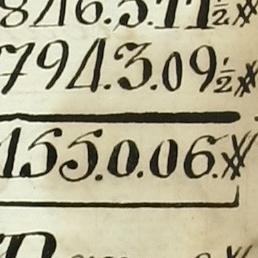 846.5.11½
794.3.09½
155.0.06.